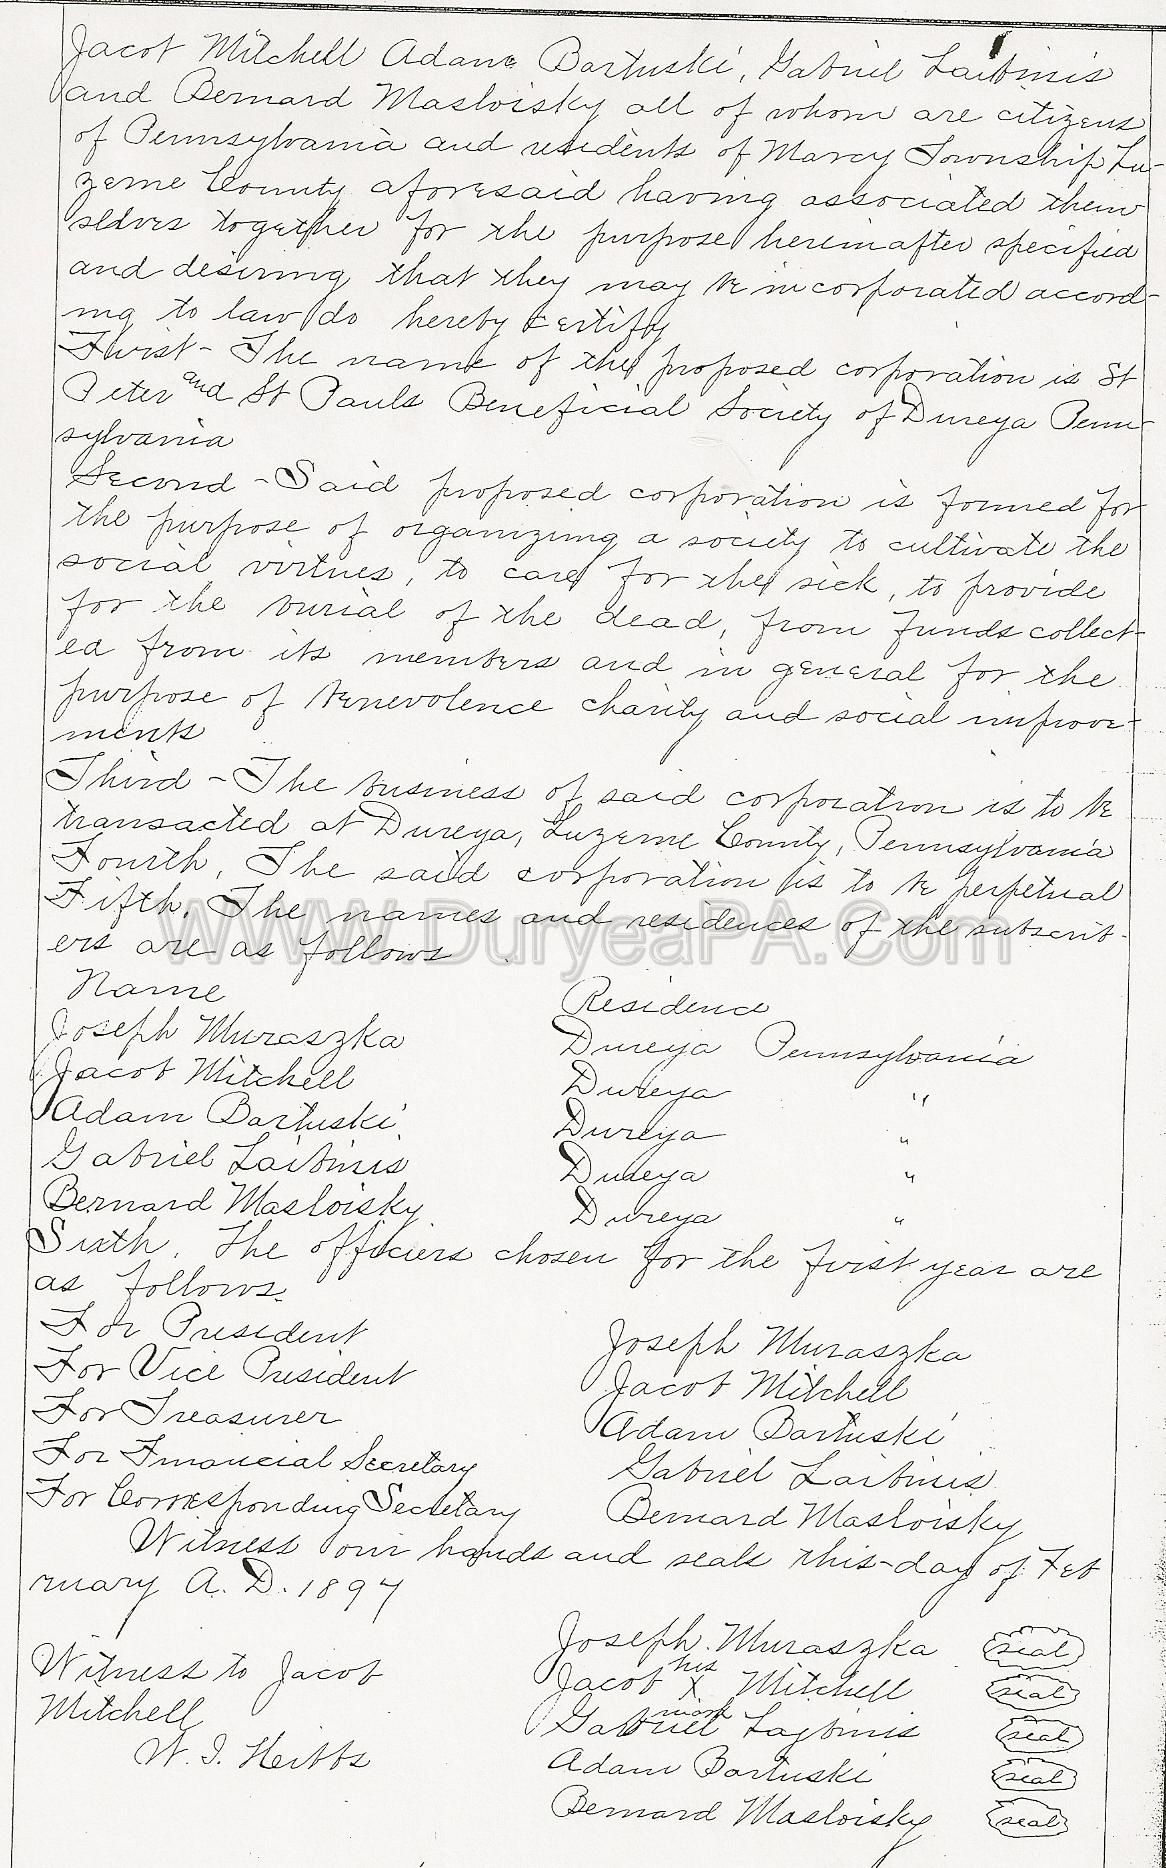 Jacob Mitchell Adam Bartuski, Gabriel Laibinis
and Bernard Masloisky all of whom are citizens
of Pennsylvania and residents of Marcy Township Lu-
zerne County aforesaid having associated them
selves together for the purpose hereinafter specified
and desiring that they may be incorporated accord-
ing to law do hereby certify
First - The name of the proposed corporation is St
Peter and St Pauls Beneficial Society of Dureya Penn-
sylvania
Second - Said proposed corporation is formed for
the purpose of organizing a society to cultivate the
social virtues, to care for the sick, to provide
for the burial of the dead, from funds collect-
ed from its members and in general for the
purpose of benevolence charity and social improve-
ments
Third - The business of said corporation is to be
transacted at Dureya, Luzerne County, Pennsylvania
Fourth, The said corporation is to be perpetual
Fifth. The names and residences of the subscrib-
WWW.DuryeaPA.Com
ers are as follows
Name Residence
Joseph Muraszka Dureya Pennsylvania
Jacob Mitchell Dureya "
Adam Bartuski Dureya "
Gabriel Laibinis Dureya "
Bernard Masloisky Dureya "
Sixth. The officiers chosen for the first year are
as follows.
For President Joseph Muraszka
For Vice President Jacob Mitchell
For Treasurer Adam Bartuski
For Financial Secretary Gabriel Laibinis
For Corresponding Secretary Bernard Masloisky
Witness our hands and seals this-day of Feb
ruary A. D. 1897
Joseph Muraszka seal
Witness to Jacob Jacob his X mark Mitchell seal
Mitchell Gabriel Laibinis seal
W. I. Hibbs Adam Bartuski seal
Bernard Masloisky seal